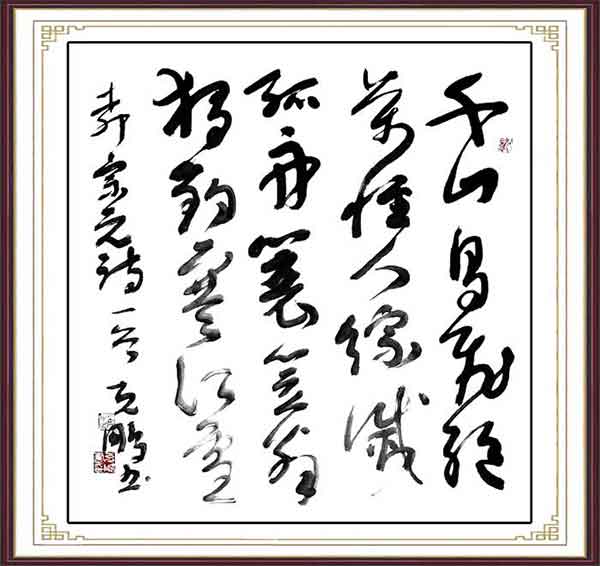 千山鳥飛絕
萬徑人蹤滅
孤舟蓑笠翁
獨釣寒江雪
柳宗元詩一首 克鵬书